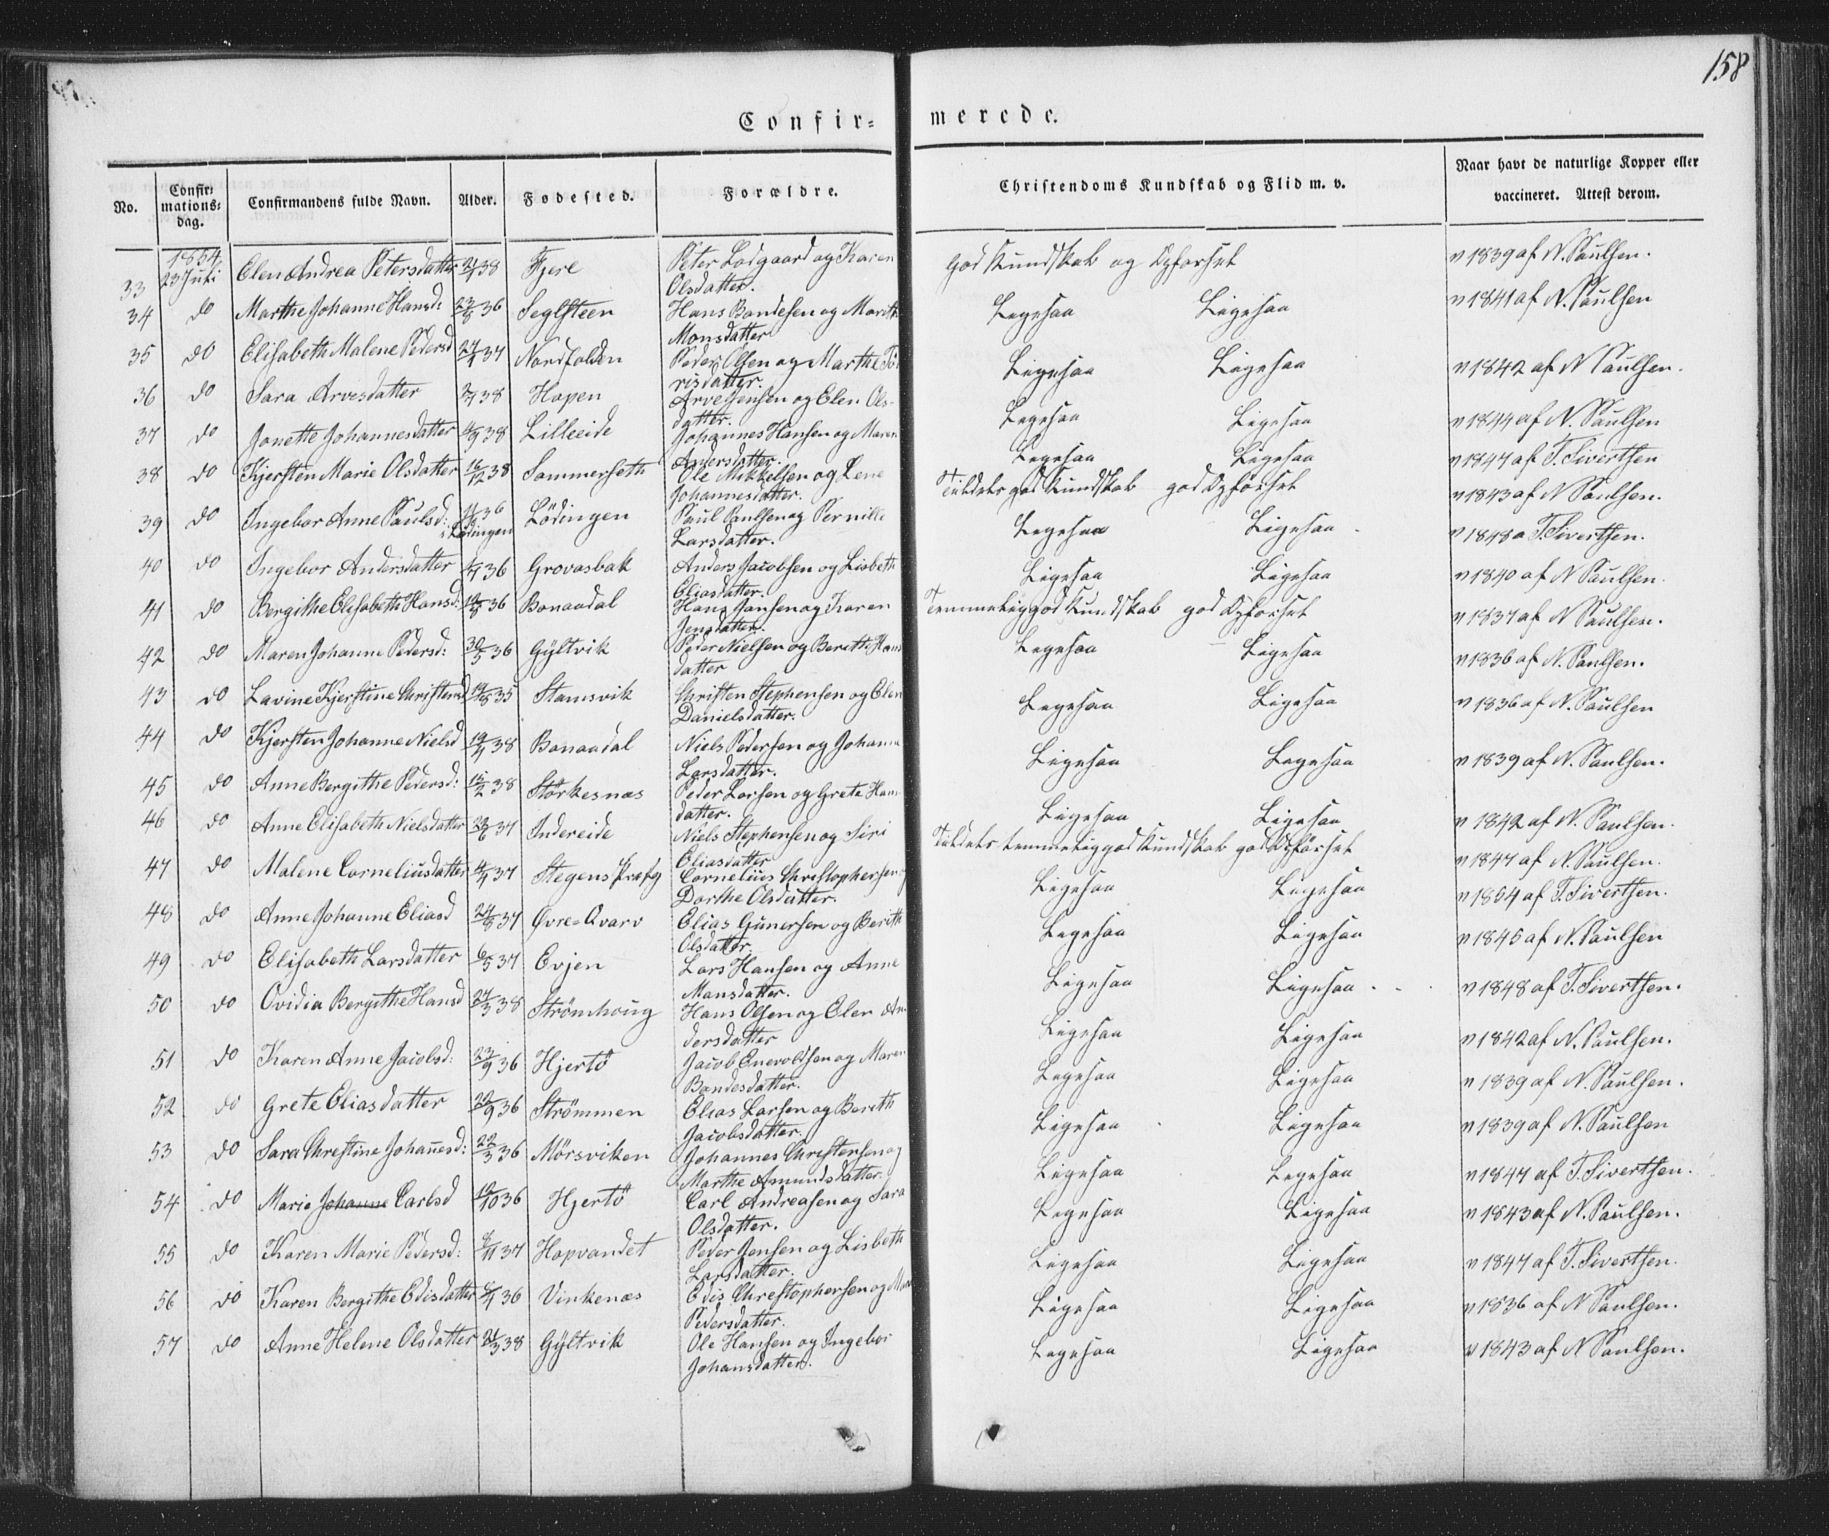 158
Confir= merede.
No. Confir: mations: dag. Confirmandens fulde Navn. Alder. Fødested. Forældre. Christendoms Kundskab og Flid m. v. Naar havt de naturlige Kopper eller vaccineret. Attest derom.
1854
33 23 Juli Elen Andrea Petersdatter 38 Fjere Peter Lodgaard og Karen Olsdatter. God Kundskab og Opførsel v 1839 af N. Paulsen.
34 do Marthe Johanne Hansd: 23/8 36 Seglsteen Hans Bandesen og Marith Monsdatter Ligesaa Ligesaa v 1841 af N. Paulsen
35 do Elisabeth Malene Pedersd 37 Nordfolden Peder Olsen og Marthe Torisdatter. Ligesaa Ligesaa v 1842 af N Paulsen.
36 do Sara Arvesdatter 38 Hopen Arve Jensen og Elen Olsdatter. Ligesaa Ligesaa v 1844 af N. Paulsen
37 do Jonette Johannesdatter 38 Lilleeide Johannes Hansen og Maren Andersdatter. Ligesaa Ligesaa v 1847 af T. Sivertsen
38 do Kjersten Marie Olsdatter 16/12 38 Sommerseth Ole Mikkelsen og Lene Johannesdatter. Tildels god Kundskab god Opførsel v 1843 af N Paulsen.
39 do Ingebor Anne Paulsd: i Lødingen 36 Lödingen Paul Paulsen og Pernille Larsdatter. Ligesaa Ligesaa v 1848 a T. Sivertsen.
40 do Ingebor Andersdatter 36 Grovasbak Anders Jacobsen og Lisbeth Eliasdatter. Ligesaa Ligesaa v 1840 af N Paulsen.
41 do Bergithe Elisabeth Hansd: 36 Bonaadal Hans Jansen og Karen Jensdatter. Temmelig god Kundskab god Opførsel v 1837 af N Paulsen.
42 do Maren Johanne Pedersd: 30/5 36 Gyltvik Peder Nielsen og Berith Hansdatter Ligesaa Ligesaa v 1836 af N. Paulsen.
43 do Lavine Kjerstine Christensd 35 Stamsvik Christen Stephensen og Elen Danielsdatter. Ligesaa Ligesaa v 1836 af N. Paulsen
44 do Kjersten Johanne Nielsd 38 Bonaadal Niels Pedersen og Johanna Larsdatter. Ligesaa Ligesaa v 1839 af N. Paulsen.
45 do Anne Bergithe Pedersd: 15/2 38 Störkesnæs Peder Larsen og Grete Hansdatter. Ligesaa Ligesaa v 1842 af N. Paulsen.
46 do Anne Elisabeth Nielsdatter 37 Indereide Niels Stephensen og Siri Eliasdatter Tildels temmelig god Kundskab god Opførsel v 1847 af N. Paulsen.
47 do Malene Corneliusdatter 37 Stegens Præstg Cornelius Christophersen og Dorthe Olsdatter. Ligesaa Ligesaa v 1854 af T. Sivertsen.
48 do Anne Johanne Eliasd 24/8 37 Øvre=Qvarv Elias Gunersen og Berith Olsdatter. Ligesaa Ligesaa v 1845 af N. Paulsen
49 do Elisabeth Larsdatter 6/5 37 Evjen Lars Hansen og Anne Mansdatter. Ligesaa Ligesaa v 1848 af T. Sivertsen.
50 do Ovidia Bergithe Hansd 27/3 38 Strömhoug Hans Olsen og Elen Andersdatter Ligesaa Ligesaa v 1842 af N. Paulsen.
51 do Karen Anne Jacobsd: 23/9 36 Hjertö Jacob Enevoldsen og Maren Bandesdatter. Ligesaa Ligesaa v 1839 af N. Paulsen.
52 do Grete Eliasdatter 36 Strömmen Elias Larsen og Berith Jacobsdatter. Ligesaa Ligesaa v 1839 af N. Paulsen
53 do Sara Christine Johañesd: 22/3 36 Mörsviken Johannes Christensen og Marthe Amundsdatter. Ligesaa Ligesaa v 1847 af T. Sivertsen.
54 do Marie Johanne Carlsd 36 Hjertö Carl Andreasen og Sara Olsdatter. Ligesaa Ligesaa v 1843 af N. Paulsen.
55 do Karen Marie Pedersd: 37 Hopvandet Peder Jensen og Lisbeth Larsdatter. Ligesaa Ligesaa v 1847 af T. Sivertsen.
56 do Karen Bergithe Edisdatter 36 Vinkenæs Edis Christophersen og Pedersdatter. Ligesaa Ligesaa v 1836 af N Paulsen.
57 do Anne Helene Olsdatter 38 Gyltvik Ole Hansen og Ingebor Johansdatter. Ligesaa Ligesaa v 1843 af N Paulsen.